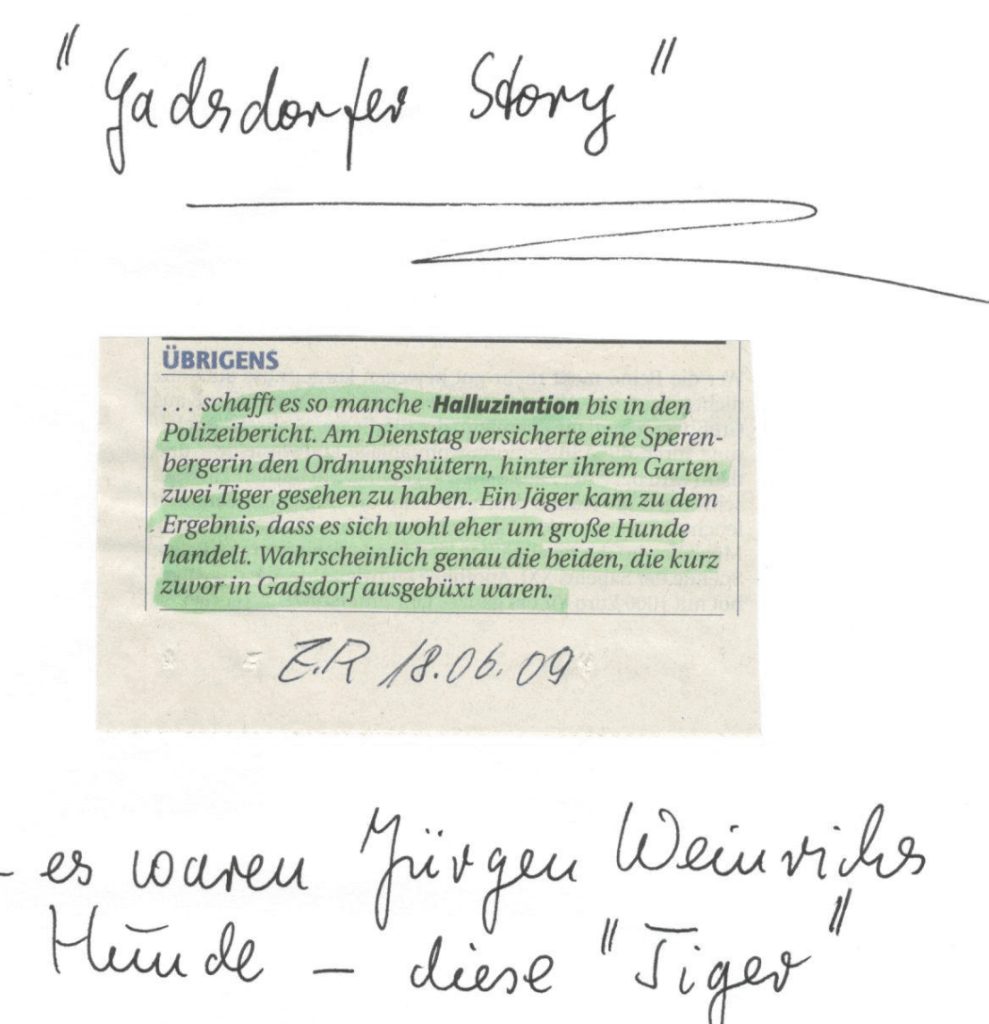 "Gadsdorfer Story"
ÜBRIGENS
... schafft es so manche Halluzination bis in den
Polizeibericht. Am Dienstag versicherte eine Speren-
bergerin den Ordnungshütern, hinter ihrem Garten
zwei Tiger gesehen zu haben. Ein Jäger kam zu dem
Ergebnis, dass es sich wohl eher um große Hunde
handelt. Wahrscheinlich genau die beiden, die kurz
zuvor in Gadsdorf ausgebüxt waren.
Z.R 18.06.09
- es waren Jürgen Weinrichs
Hunde – diese "Tiger"